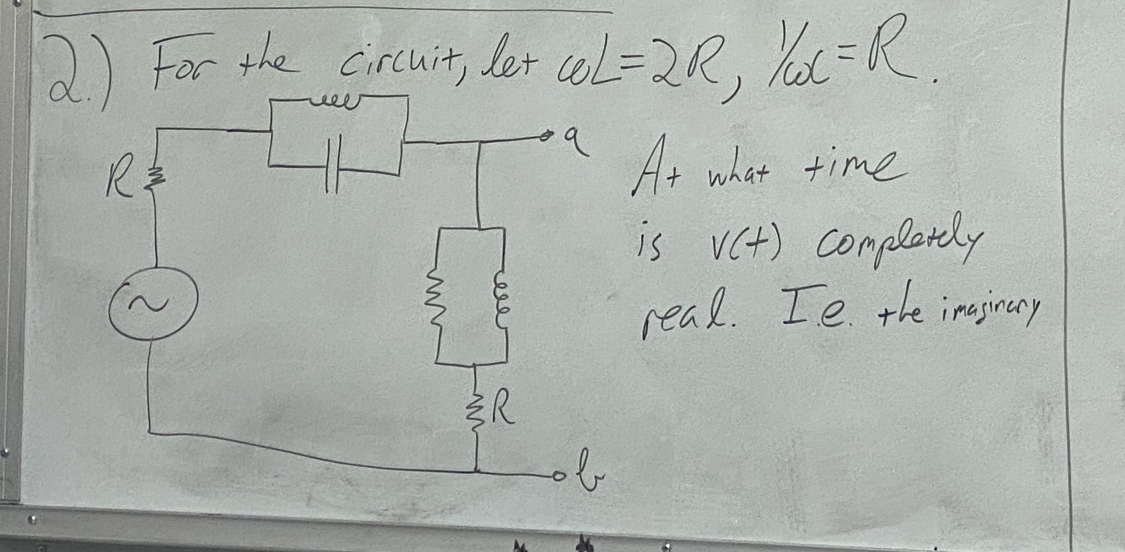 2.) For the circuit, let ωL=2R, 1/ωC=R.
a
R
At what time
is v(t) completely
real. I.e. the imaginary
R
b